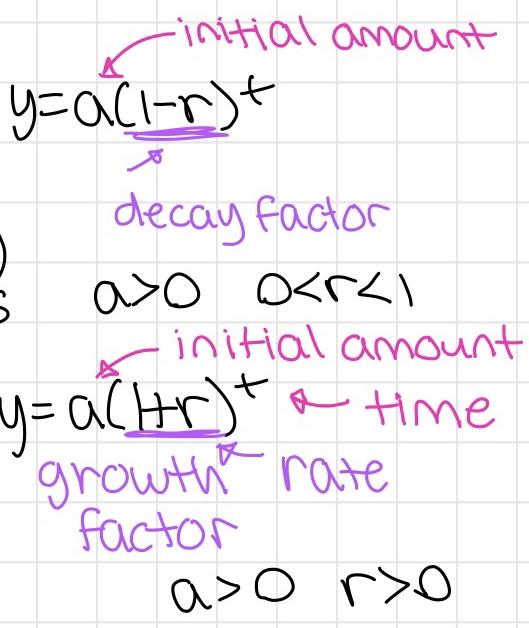 initial amount
y=a(1-r)^t
decay factor
a>0 0<r<1
initial amount
y=a(1+r)^t time
growth rate
factor
a>0 r>0